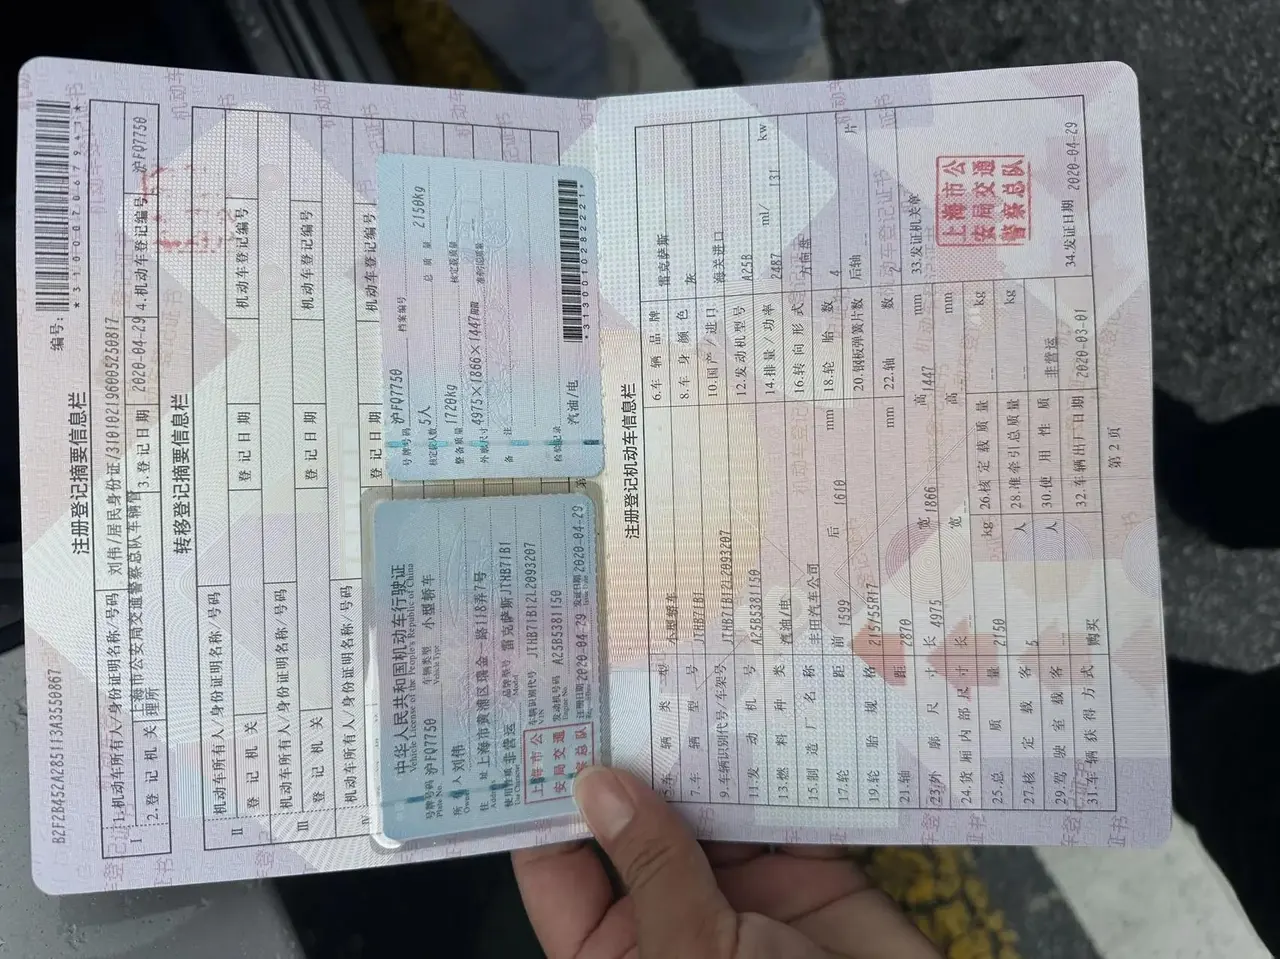 编号:
*310007067943*
B2F2B452A28511F3A3550867
注册登记摘要信息栏
Ⅰ
1.机动车所有人/身份证明名称/号码 刘伟/居民身份证/310102196005250817
2.登记机关 上海市公安局交通警察总队车辆管理所 3.登记日期 2020-04-29 4.机动车登记编号 沪FQ7750
转移登记摘要信息栏
Ⅱ
机动车所有人/身份证明名称/号码
登记机关 登记日期 机动车登记编号
Ⅲ
机动车所有人/身份证明名称/号码
登记机关 登记日期 机动车登记编号
机动车所有人/身份证明名称/号码
登记日期 机动车登记编号
中华人民共和国机动车行驶证
Vehicle License of the People's Republic of China
号牌号码 沪FQ7750 车辆类型 小型轿车
Plate No. Vehicle Type
所有人 刘伟
Owner
住址 上海市黄浦区瑞金一路118弄7号
Address
使用性质 非营运 品牌型号 雷克萨斯JTHB71B1
Use Character Model
上海市公安局交通警察总队
车辆识别代号 JTHB71B12L2093207
VIN
发动机号码 A25B5381150
Engine No.
注册日期 2020-04-29 发证日期 2020-04-29
Issue Date
号牌号码 沪FQ7750 档案编号
核定载人数 5人 总质量 2150kg
整备质量 1720kg 核定载质量
外廓尺寸 4975×1866×1447mm 准牵引总质量
备注
检验记录 汽油/电
*3130010282221*
注册登记机动车信息栏
5.车辆类型 小型轿车 6.车辆品牌 雷克萨斯
7.车辆型号 JTHB71B1 8.车身颜色 灰
9.车辆识别代号/车架号 JTHB71B12L2093207 10.国产/进口 海关进口
11.发动机号 A25B5381150 12.发动机型号 A25B
13.燃料种类 汽油/电 14.排量/功率 2487 ml/ 131 kw
15.制造厂名称 丰田汽车公司 16.转向形式 方向盘
17.轮距 前 1599 后 1610 mm 18.轮胎数 4
19.轮胎规格 215/55R17 20.钢板弹簧片数 后轴 -- 片
21.轴距 2870 mm 22.轴数 2
23.外廓尺寸 长 4975 宽 1866 高 1447 mm
24.货厢内部尺寸 长 -- 宽 -- 高 -- mm
25.总质量 2150 kg 26.核定载质量 -- kg
27.核定载客 5 人 28.准牵引总质量 -- kg
29.驾驶室载客 -- 人 30.使用性质 非营运
31.车辆获得方式 购买 32.车辆出厂日期 2020-03-01
33.发证机关章
上海市公安局交通警察总队
34.发证日期 2020-04-29
第 2 页